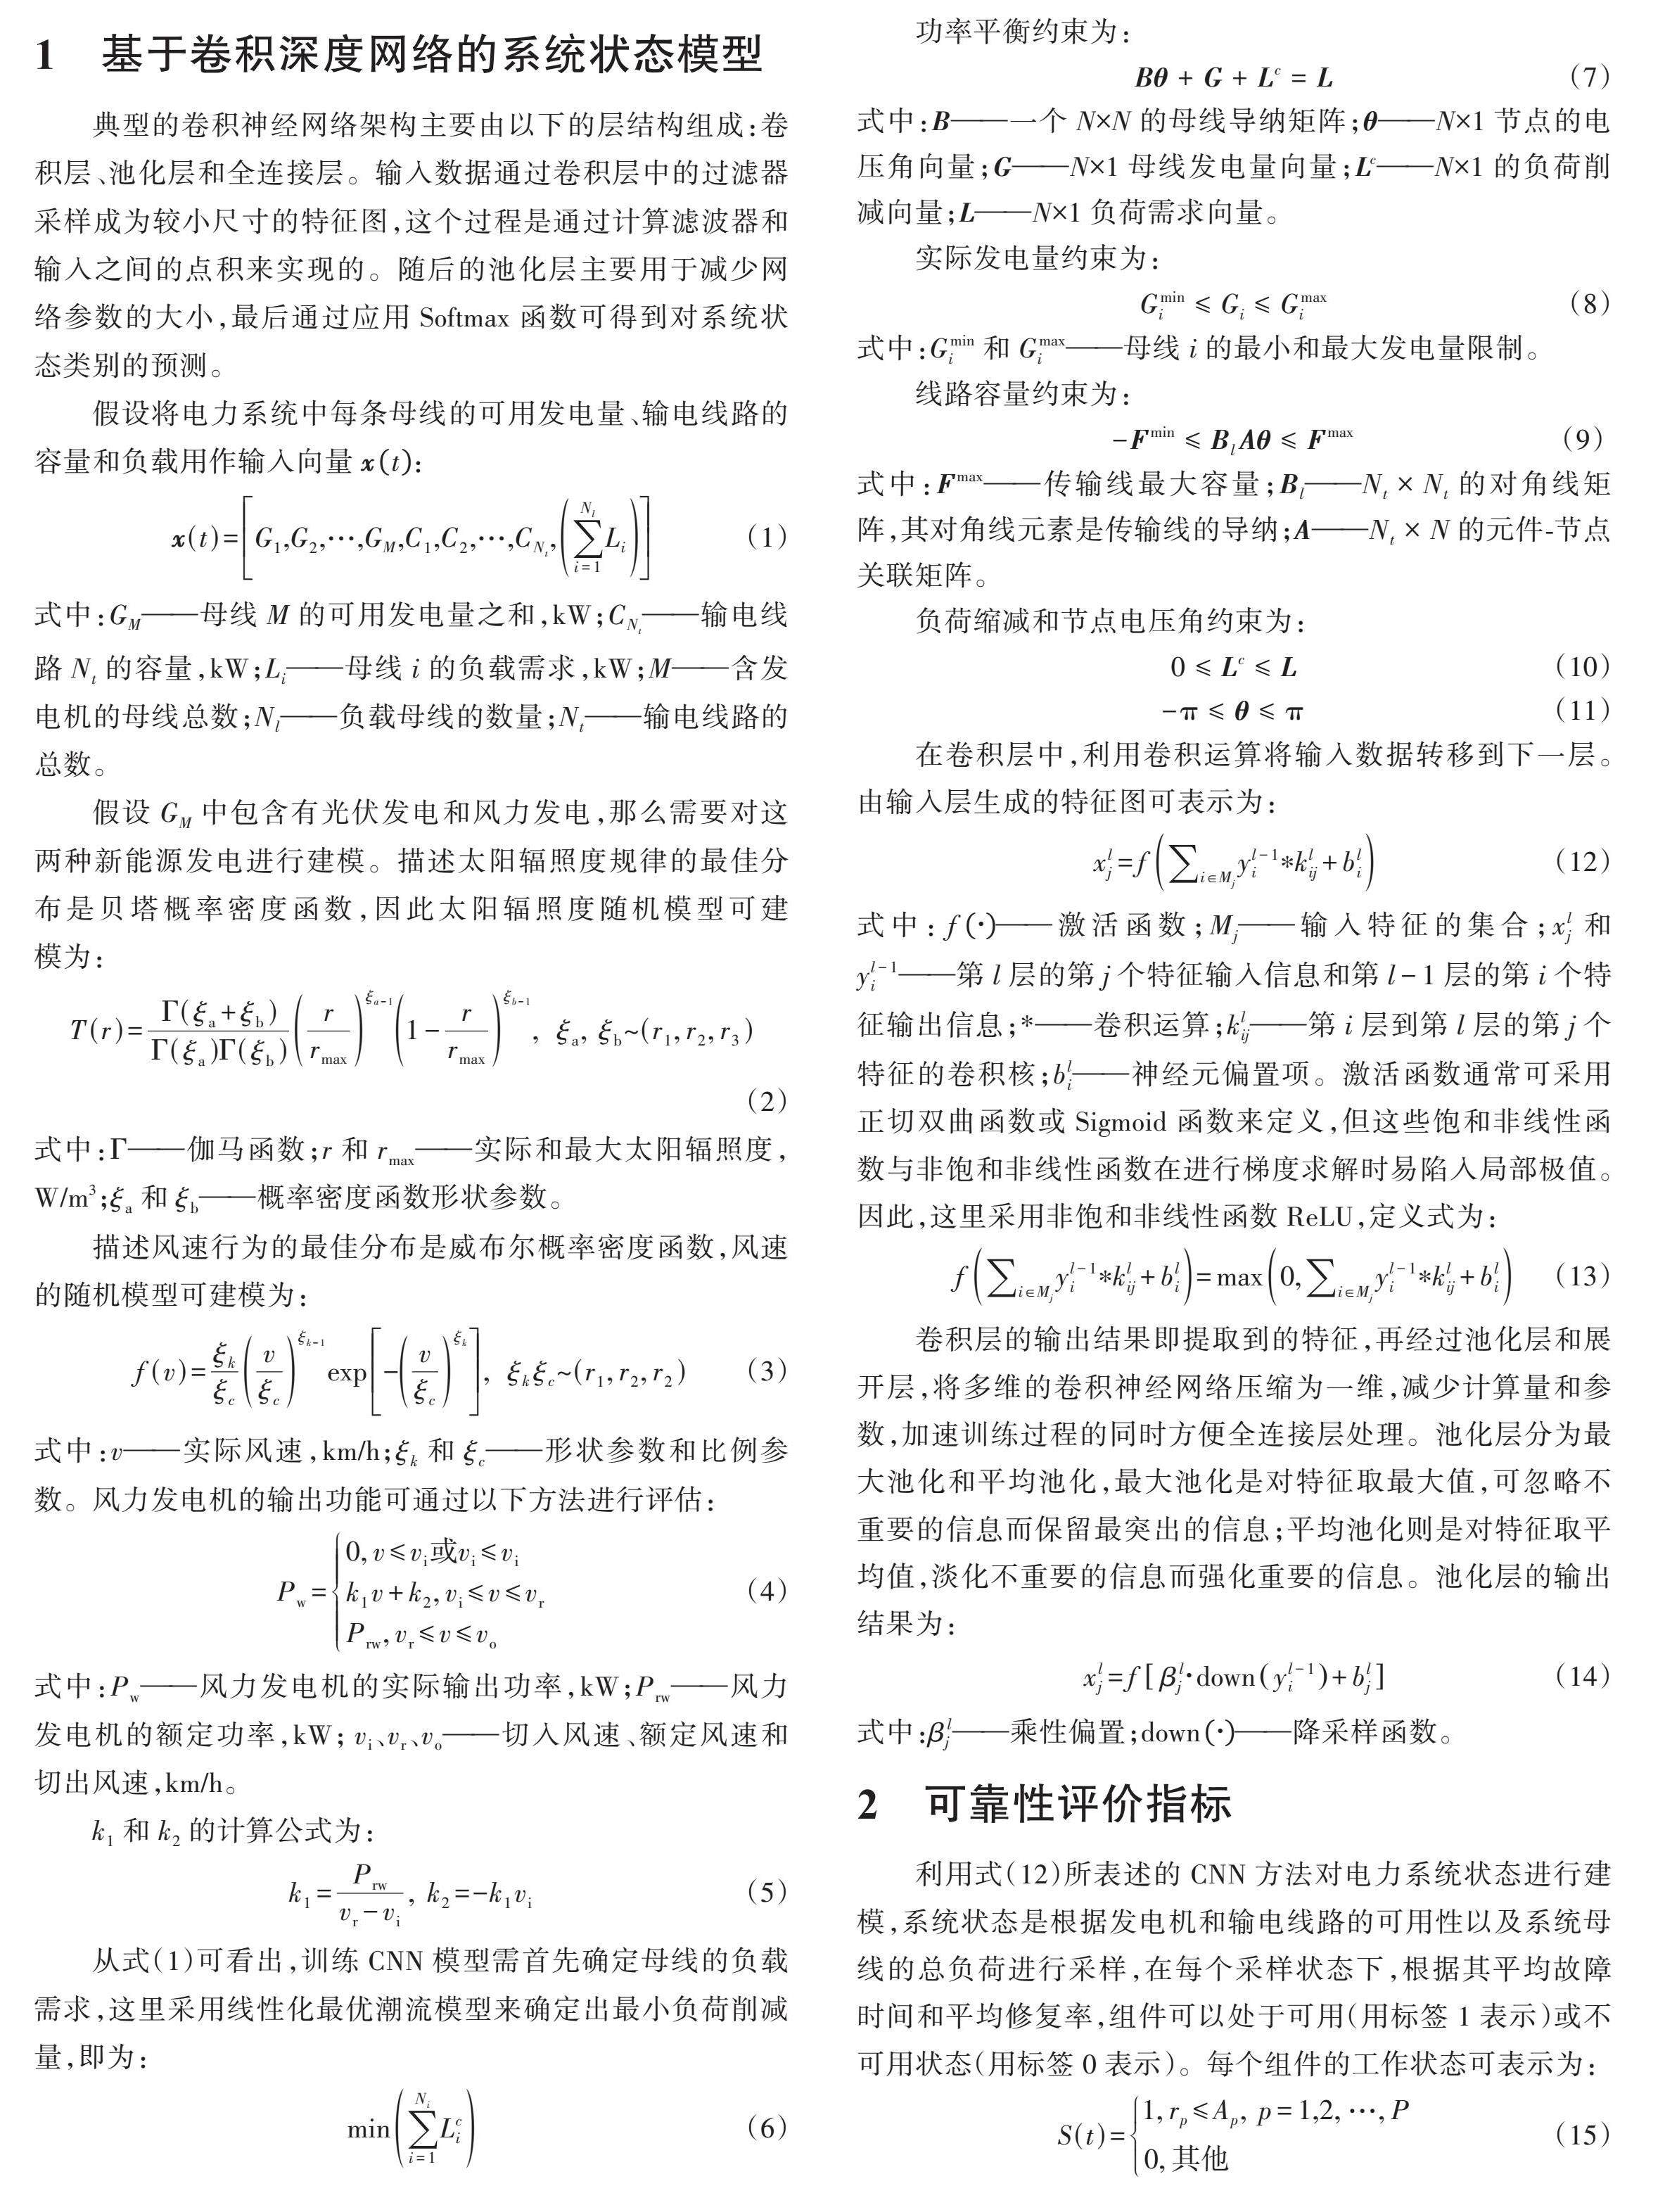 1 基于卷积深度网络的系统状态模型
典型的卷积神经网络架构主要由以下的层结构组成:卷
积层、池化层和全连接层。输入数据通过卷积层中的过滤器
采样成为较小尺寸的特征图,这个过程是通过计算滤波器和
输入之间的点积来实现的。随后的池化层主要用于减少网
络参数的大小,最后通过应用 Softmax 函数可得到对系统状
态类别的预测。
假设将电力系统中每条母线的可用发电量、输电线路的
容量和负载用作输入向量 x(t):
x(t)=[G₁,G₂,⋯,G_M,C₁,C₂,⋯,C_{N_t},(∑_{i=1}^{N_l} L_i)] (1)
式中:G_M——母线 M 的可用发电量之和,kW;C_{N_t}——输电线
路 N_t 的容量,kW;L_i——母线 i 的负载需求,kW;M——含发
电机的母线总数;N_l——负载母线的数量;N_t——输电线路的
总数。
假设 G_M 中包含有光伏发电和风力发电,那么需要对这
两种新能源发电进行建模。描述太阳辐照度规律的最佳分
布是贝塔概率密度函数,因此太阳辐照度随机模型可建
模为:
T(r)=Γ(ξ_a+ξ_b)/(Γ(ξ_a)Γ(ξ_b)) (r/r_max)^{ξ_a-1} (1-r/r_max)^{ξ_b-1}, ξ_a, ξ_b~(r₁,r₂,r₃)
(2)
式中:Γ——伽马函数;r 和 r_max——实际和最大太阳辐照度,
W/m³;ξ_a 和 ξ_b——概率密度函数形状参数。
描述风速行为的最佳分布是威布尔概率密度函数,风速
的随机模型可建模为:
f(v)=ξ_k/ξ_c (v/ξ_c)^{ξ_k-1} exp[-(v/ξ_c)^{ξ_k}], ξ_kξ_c~(r₁,r₂,r₂) (3)
式中:v——实际风速,km/h;ξ_k 和 ξ_c——形状参数和比例参
数。风力发电机的输出功能可通过以下方法进行评估:
P_w={0, v≤v_i或v_i≤v_i
k₁v+k₂, v_i≤v≤v_r (4)
P_rw, v_r≤v≤v_o
式中:P_w——风力发电机的实际输出功率,kW;P_rw——风力
发电机的额定功率,kW; v_i、v_r、v_o——切入风速、额定风速和
切出风速,km/h。
k₁ 和 k₂ 的计算公式为:
k₁=P_rw/(v_r-v_i), k₂=-k₁v_i (5)
从式(1)可看出,训练 CNN 模型需首先确定母线的负载
需求,这里采用线性化最优潮流模型来确定出最小负荷削减
量,即为:
min(∑_{i=1}^{N_i} L_i^c) (6)
功率平衡约束为:
Bθ + G + L^c = L (7)
式中:B——一个 N×N 的母线导纳矩阵;θ——N×1 节点的电
压角向量;G——N×1 母线发电量向量;L^c——N×1 的负荷削
减向量;L——N×1 负荷需求向量。
实际发电量约束为:
G_i^min ≤ G_i ≤ G_i^max (8)
式中:G_i^min 和 G_i^max——母线 i 的最小和最大发电量限制。
线路容量约束为:
-F^min ≤ B_l Aθ ≤ F^max (9)
式中:F^max——传输线最大容量;B_l——N_t × N_t 的对角线矩
阵,其对角线元素是传输线的导纳;A——N_t × N 的元件-节点
关联矩阵。
负荷缩减和节点电压角约束为:
0 ≤ L^c ≤ L (10)
-π ≤ θ ≤ π (11)
在卷积层中,利用卷积运算将输入数据转移到下一层。
由输入层生成的特征图可表示为:
x_j^l=f(∑_{i∈M_j} y_i^{l-1}*k_ij^l+b_i^l) (12)
式中: f(·)——激活函数; M_j——输入特征的集合; x_j^l 和
y_i^{l-1}——第 l 层的第 j 个特征输入信息和第 l-1 层的第 i 个特
征输出信息;*——卷积运算;k_ij^l——第 i 层到第 l 层的第 j 个
特征的卷积核;b_i^l——神经元偏置项。激活函数通常可采用
正切双曲函数或 Sigmoid 函数来定义,但这些饱和非线性函
数与非饱和非线性函数在进行梯度求解时易陷入局部极值。
因此,这里采用非饱和非线性函数 ReLU,定义式为:
f(∑_{i∈M_j} y_i^{l-1}*k_ij^l+b_i^l)=max(0,∑_{i∈M_j} y_i^{l-1}*k_ij^l+b_i^l) (13)
卷积层的输出结果即提取到的特征,再经过池化层和展
开层,将多维的卷积神经网络压缩为一维,减少计算量和参
数,加速训练过程的同时方便全连接层处理。池化层分为最
大池化和平均池化,最大池化是对特征取最大值,可忽略不
重要的信息而保留最突出的信息;平均池化则是对特征取平
均值,淡化不重要的信息而强化重要的信息。池化层的输出
结果为:
x_j^l=f[β_j^l·down(y_i^{l-1})+b_j^l] (14)
式中:β_j^l——乘性偏置;down(·)——降采样函数。
2 可靠性评价指标
利用式(12)所表述的 CNN 方法对电力系统状态进行建
模,系统状态是根据发电机和输电线路的可用性以及系统母
线的总负荷进行采样,在每个采样状态下,根据其平均故障
时间和平均修复率,组件可以处于可用(用标签 1 表示)或不
可用状态(用标签 0 表示)。每个组件的工作状态可表示为:
S(t)={1, r_p≤A_p, p=1,2,⋯,P
0, 其他 (15)